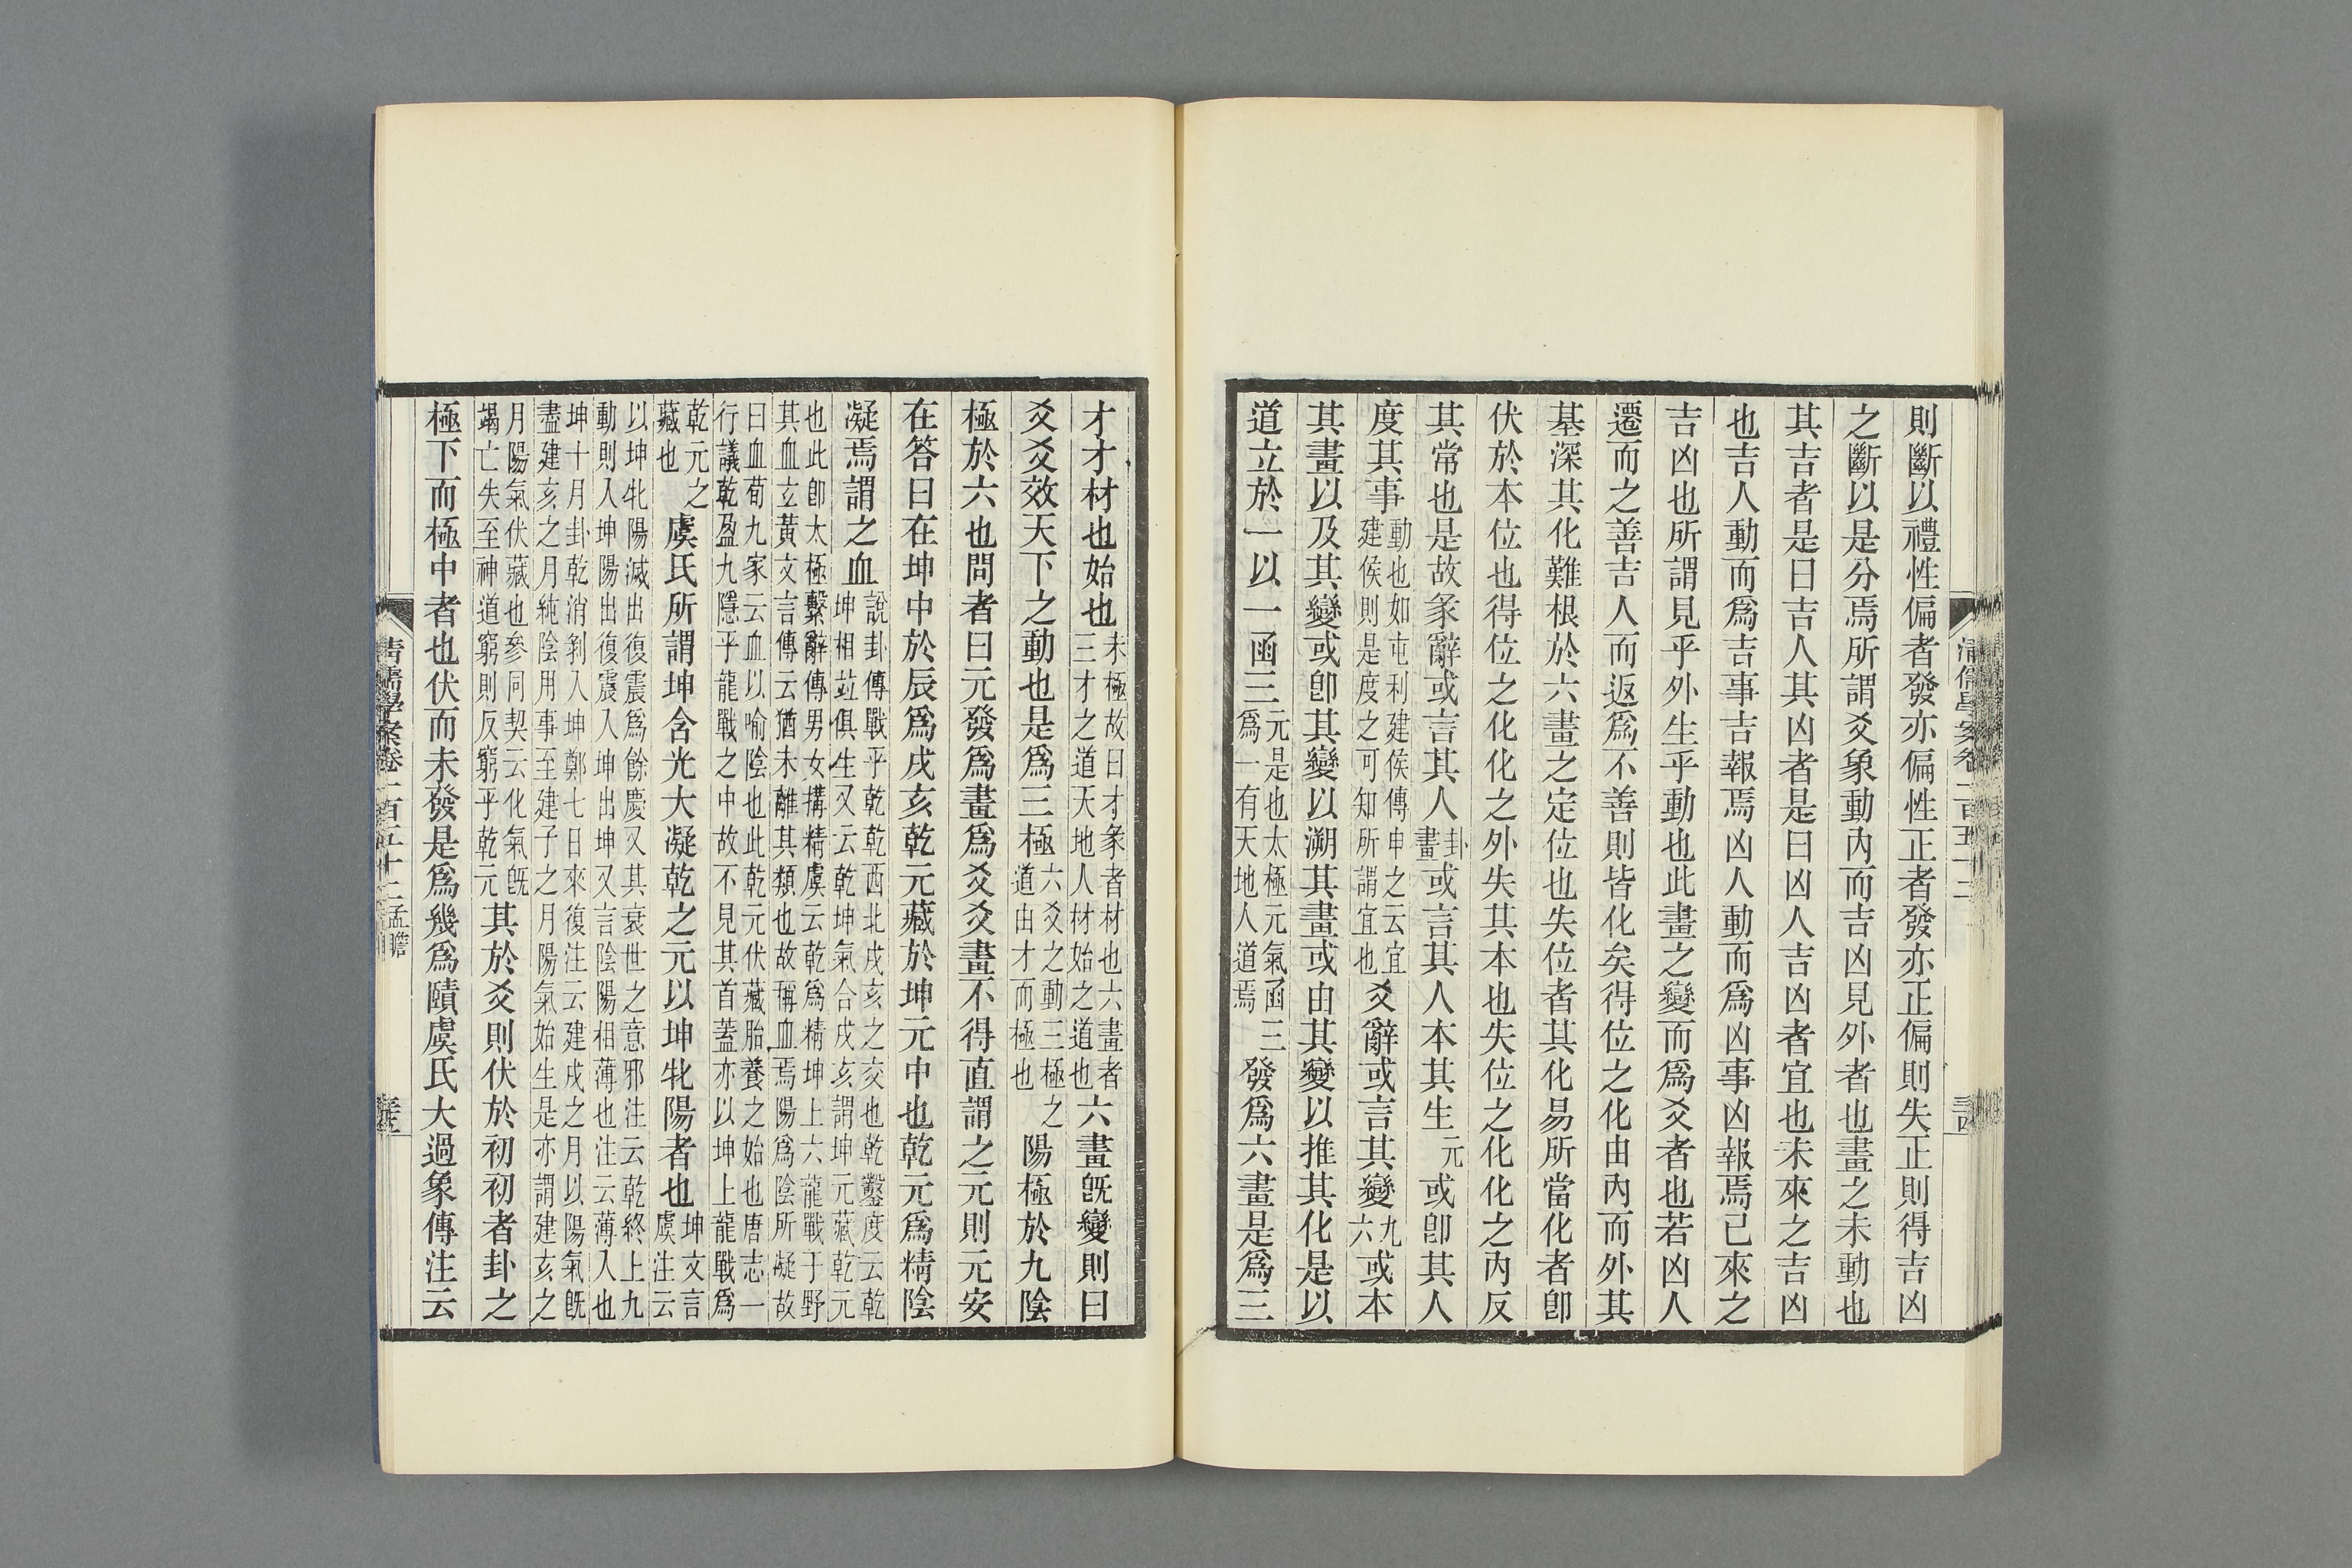 則斷以禮性偏者發亦偏性正者發亦正偏則失正則得吉凶
之斷以是分焉所謂爻象動內而吉凶見外者也畫之未動也
其吉者是曰吉人其凶者是曰凶人吉凶者宜也未來之吉凶
也吉人動而爲吉事吉報焉凶人動而爲凶事凶報焉已來之
吉凶也所謂見乎外生乎動也此畫之變而爲爻者也若凶人
遷而之善吉人而返爲不善則皆化矣得位之化由內而外其
基深其化難根於六畫之定位也失位者其化易所當化者卽
伏於本位也得位之化化之外失其本也失位之化化之內反
其常也是故彖辭或言其人卦畫或言其人本其生元或卽其人
度其事動也如屯利建侯傳申之云宜建侯則是度之可知所謂宜也爻辭或言其變九六或本
其畫以及其變或卽其變以溯其畫或由其變以推其化是以
道立於一以一函三元是也太極元氣函三爲一有天地人道焉發爲六畫是爲三
才才材也始也未極故曰才彖者材也六畫者三才之道天地人材始之道也六畫旣變則曰
爻爻效天下之動也是爲三極六爻之動三極之道由才而極也陽極於九陰
極於六也問者曰元發爲畫爲爻爻畫不得直謂之元則元安
在答曰在坤中於辰爲戌亥乾元藏於坤元中也乾元爲精陰
凝焉謂之血說卦傳戰乎乾乾西北戌亥之交也乾鑿度云乾坤相竝俱生又云乾坤氣合戌亥謂坤元藏乾元
也此卽太極繫辭傳男女搆精虞云乾爲精坤上六龍戰于野其血玄黃文言傳云猶未離其類也故稱血焉陽爲陰所凝故
曰血荀九家云血以喻陰也此乾元伏藏胎養之始也唐志一行議乾盈九隱乎龍戰之中故不見其首蓋亦以坤上龍戰爲
乾元之藏也虞氏所謂坤含光大凝乾之元以坤牝陽者也坤文言虞注云
以坤牝陽滅出復震爲餘慶又其衰世之意邪注云乾終上九動則入坤陽出復震入坤出坤又言陰陽相薄也注云薄入也
坤十月卦乾消剥入坤鄭七日來復注云建戌之月以陽氣旣盡建亥之月純陰用事至建子之月陽氣始生是亦謂建亥之
月陽氣伏藏也參同契云化氣旣竭亡失至神道窮則反窮乎乾元其於爻則伏於初初者卦之
極下而極中者也伏而未發是爲幾爲賾虞氏大過象傳注云
清儒學案卷一百五十二 孟瞻